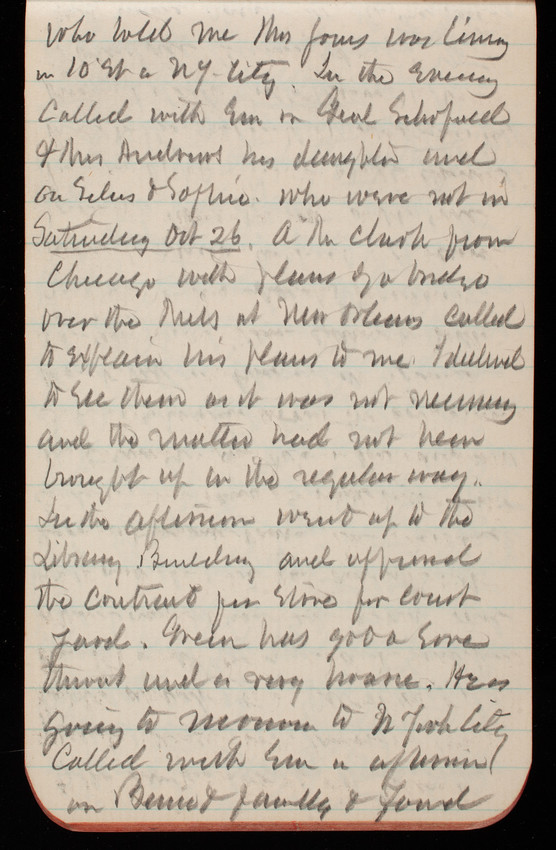 who told me Mrs was living
in 10" St in N.Y. City. In the Evening
Called with Em on Genl Schofield
& Mrs Andrews his daughter and
on Silas & Sophie. who were not in
Saturday Oct 26. A Mr Clark from
Chicago with plans of a bridge
over the Miss at New Orleans called
to explain his plans to me. I declined
to see them as it was not necessary
and the matter had not been
brought up in the regular way.
In the afternoon went up to the
Library Building and approved
the contract for stone for court
yard. Green has got a sore
throat and is very hoarse. He is
going to morrow to N York City
Called with Em in afternoon
on & family & found